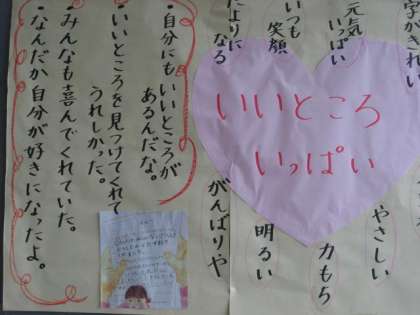 字がきれい
元気
いっぱい
いつも
笑顔
たよりに
なる
いいところ
いっぱい
やさしい
力もち
明るい
がんばりや
・自分にもいいところが
あるんだな。
・いいところを見つけてくれて
うれしかった。
・みんなも喜んでくれていた。
・なんだか自分が好きになったよ。